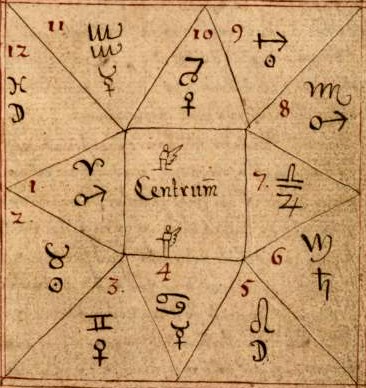 11
♒
☿
10
♑
♀
9
♐
☉
12
♓
☽
8
♏
♂
1
♈
♂
Centrum̄
7
♎
♃
2
♉
☉
3
♊
♀
4
♋
☿
5
♌
☽
6
♍
♄